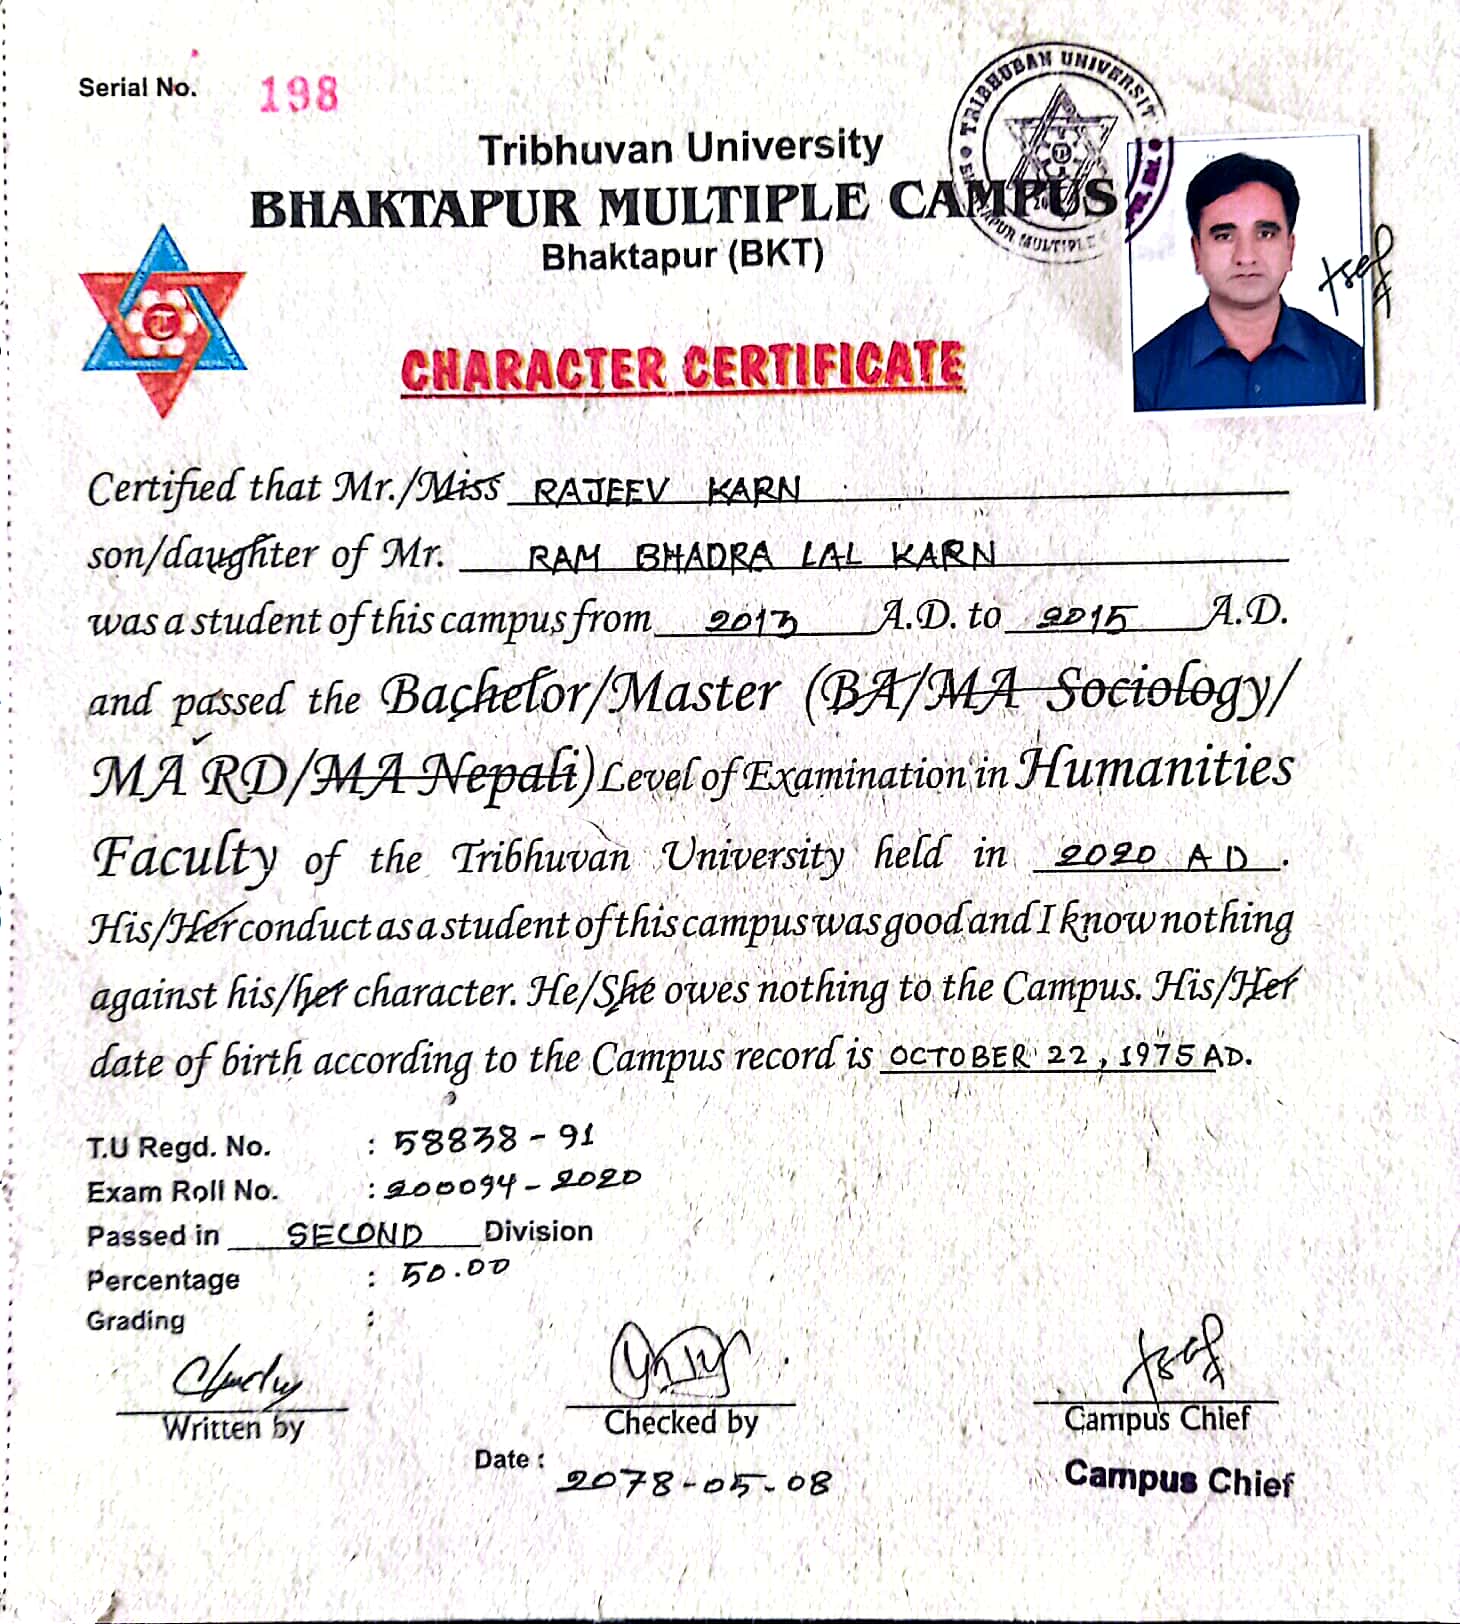 Serial No. 198
TRIBHUBAN UNIVERSIT
Tribhuvan University
BHAKTAPUR MULTIPLE CAMPUS
Bhaktapur (BKT)
CHARACTER CERTIFICATE
Certified that Mr./Miss RAJEEV KARN
son/daughter of Mr. RAM BHADRA LAL KARN
was a student of this campus from 2013 A.D. to 2015 A.D.
and passed the Bachelor/Master (BA/MA Sociology/
MA RD/MA Nepali) Level of Examination in Humanities
Faculty of the Tribhuvan University held in 2020 AD.
His/Her conduct as a student of this campus was good and I know nothing
against his/her character. He/She owes nothing to the Campus. His/Her
date of birth according to the Campus record is OCTOBER 22, 1975 AD.
T.U Regd. No. : 58838-91
Exam Roll No. : 200094-2020
Passed in SECOND Division
Percentage : 50.00
Grading :
Written by Checked by Campus Chief
Date : 2078-05-08
Campus Chief